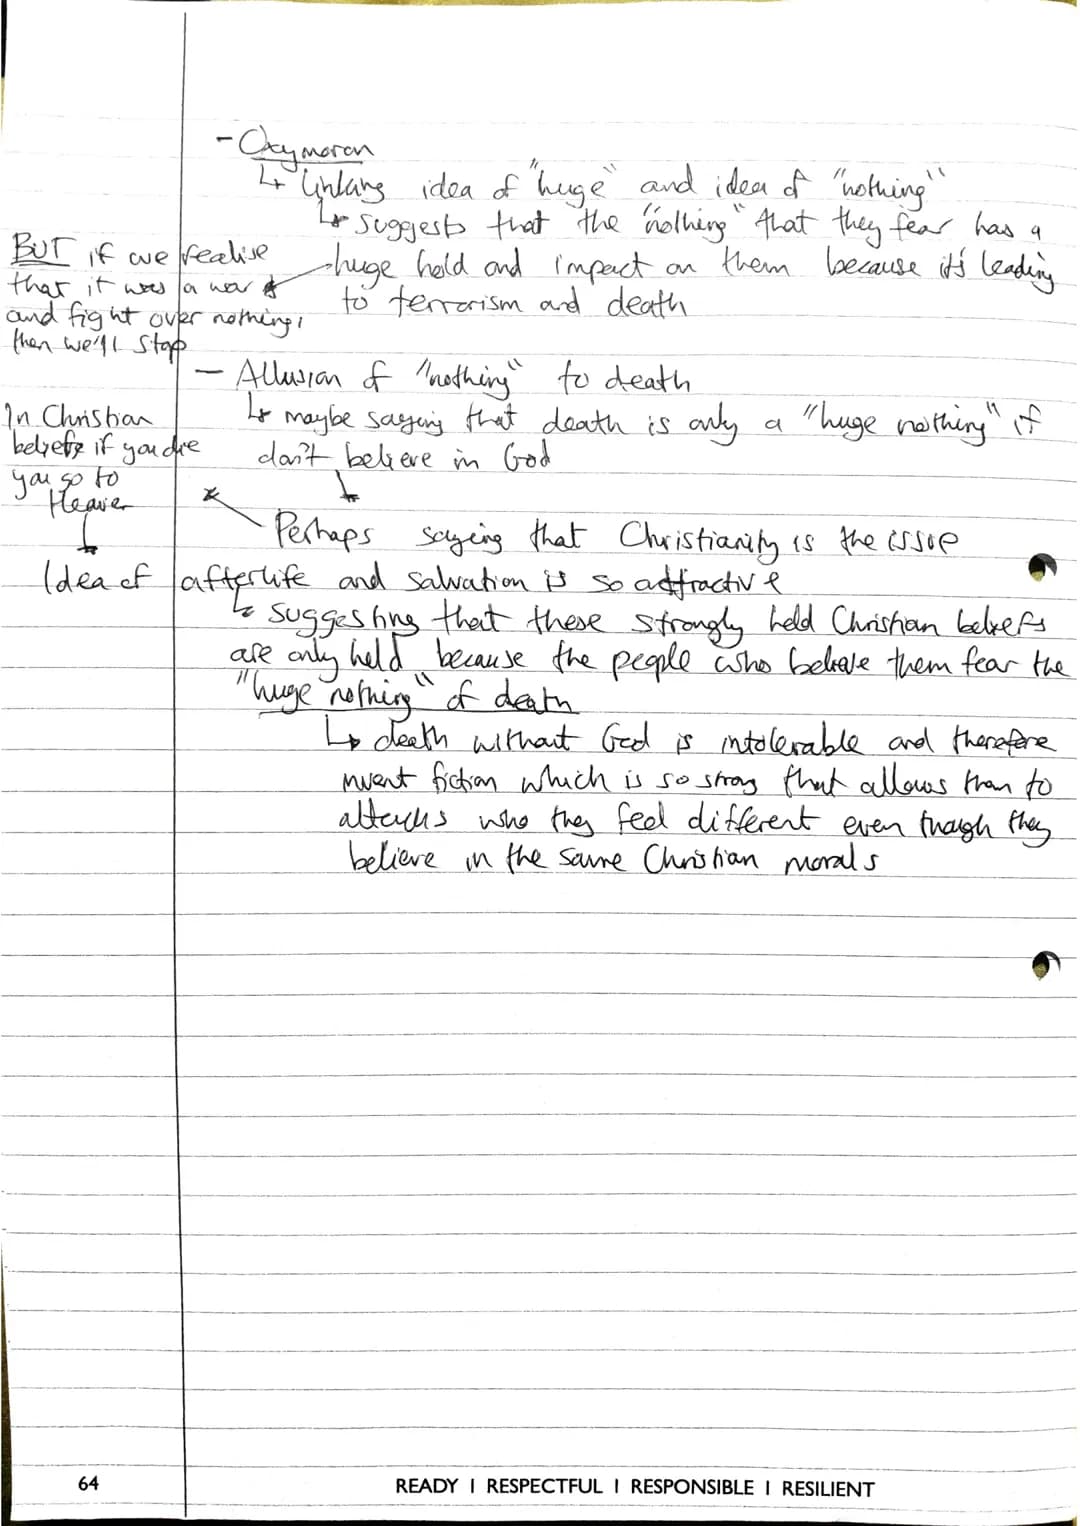 - Oxymoron
↳ linking idea of "huge" and idea of "nothing"
↳ suggests that the "nothing" that they fear has a
huge hold and impact on them because it's leading
to terrorism and death
BUT if we realise
that it was a war
and fight over nothing,
then we'll stop
- Allusion of "nothing" to death
↳ maybe saying that death is only a "huge nothing" if
don't believe in God
In Christian
beliefs if you die
you go to
Heaven
Perhaps saying that Christianity is the issue
Idea of afterlife and salvation is so attractive
↳ suggesting that these strongly held Christian beliefs
are only held because the people who believe them fear the
"huge nothing" of death
↳ death without God is intolerable and therefore
invent fiction which is so strong that allows them to
attacks who they feel different even though they
believe in the same Christian morals
64
READY | RESPECTFUL | RESPONSIBLE | RESILIENT